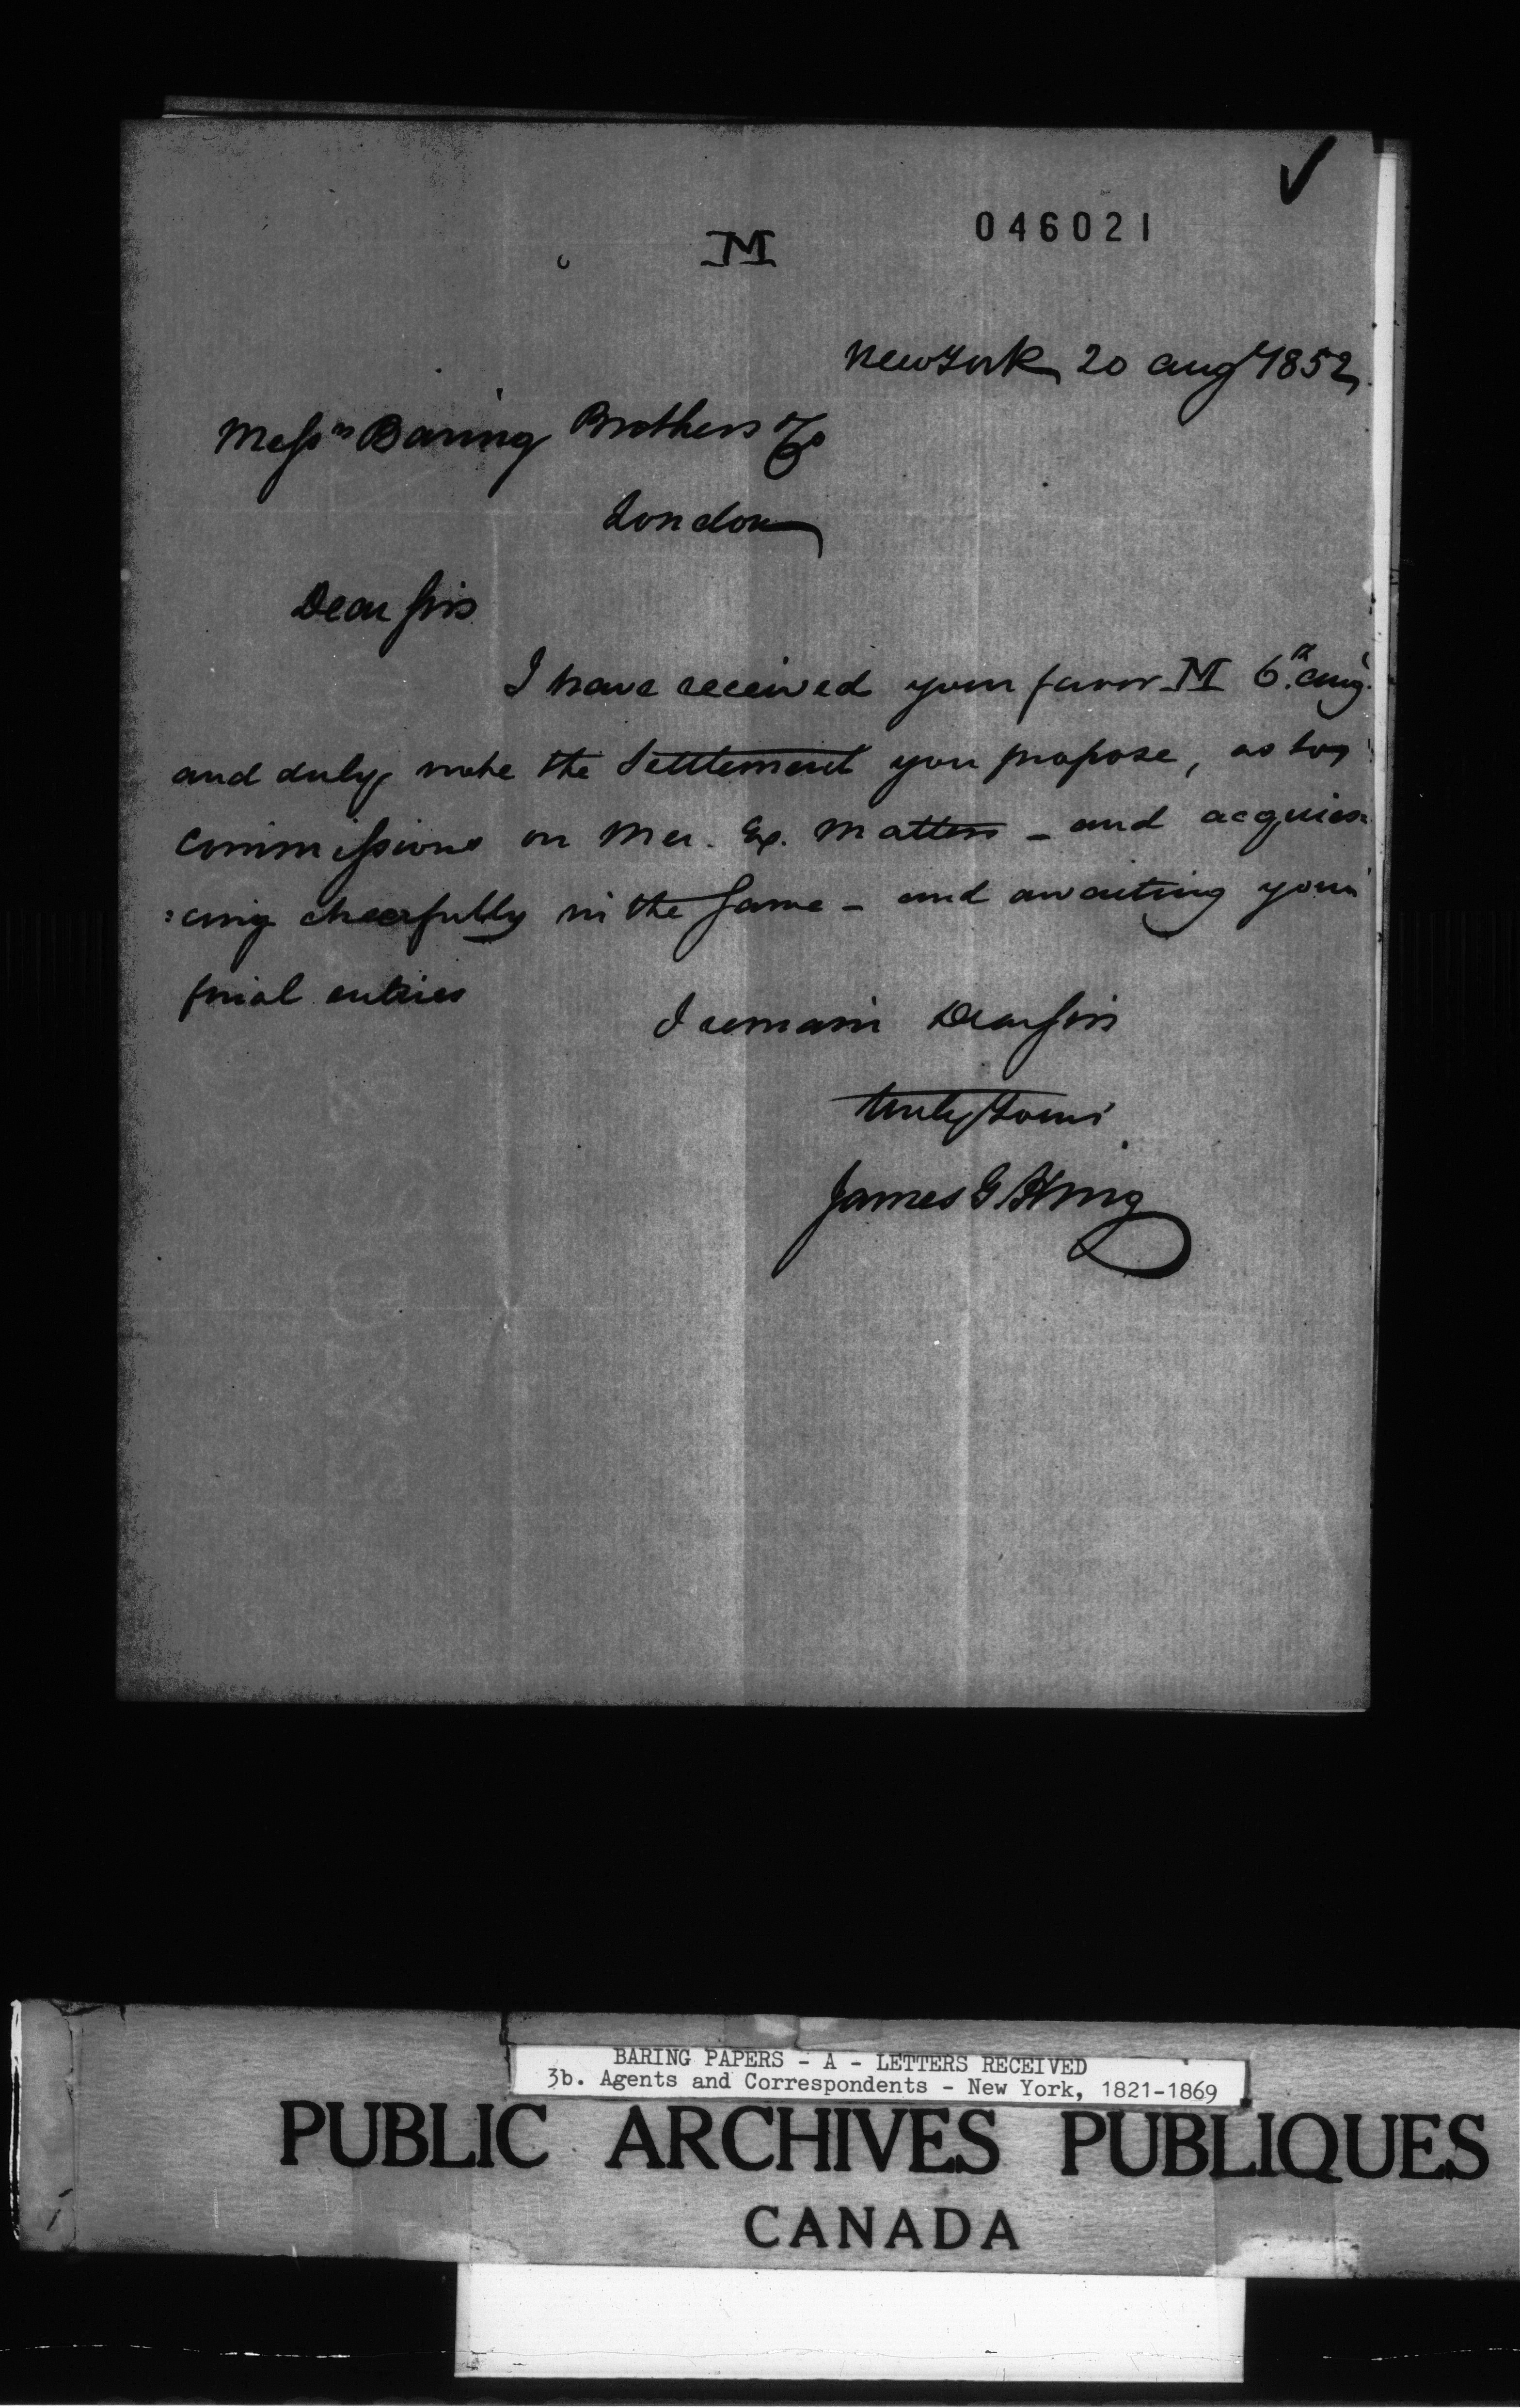 M
046021
New York 20 Augt 1852
Messrs Baring Brothers & Co
London
Dear Sirs
I have received your favor M 6th Aug.
and duly note the settlement you propose, as to
commissions on Mer. Ex. matters - and acquies=
=cing cheerfully in the same - and awaiting your
final entries
I remain Dear Sirs
truly Yours
James G King
BARING PAPERS - A - LETTERS RECEIVED
3b. Agents and Correspondents - New York, 1821-1869
PUBLIC ARCHIVES PUBLIQUES
CANADA